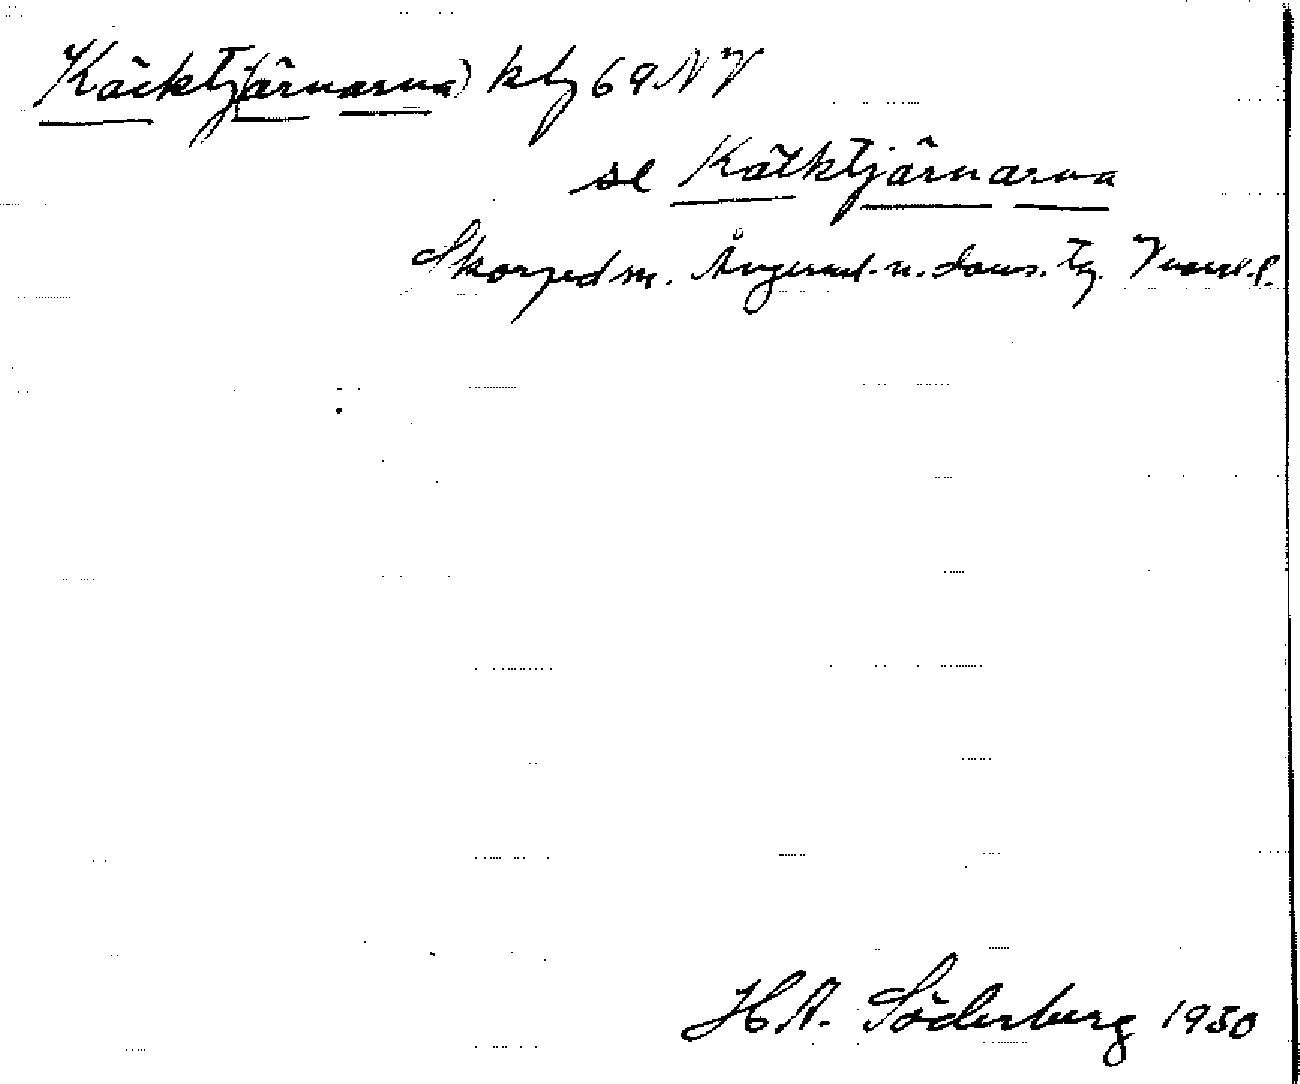 Käcktj(ärnarna) kbl 69 NV
se Kätktjärnarna
Skorped sn. Ångerml. n. doms. tg. Västernl. l.
H A. Söderberg 1950